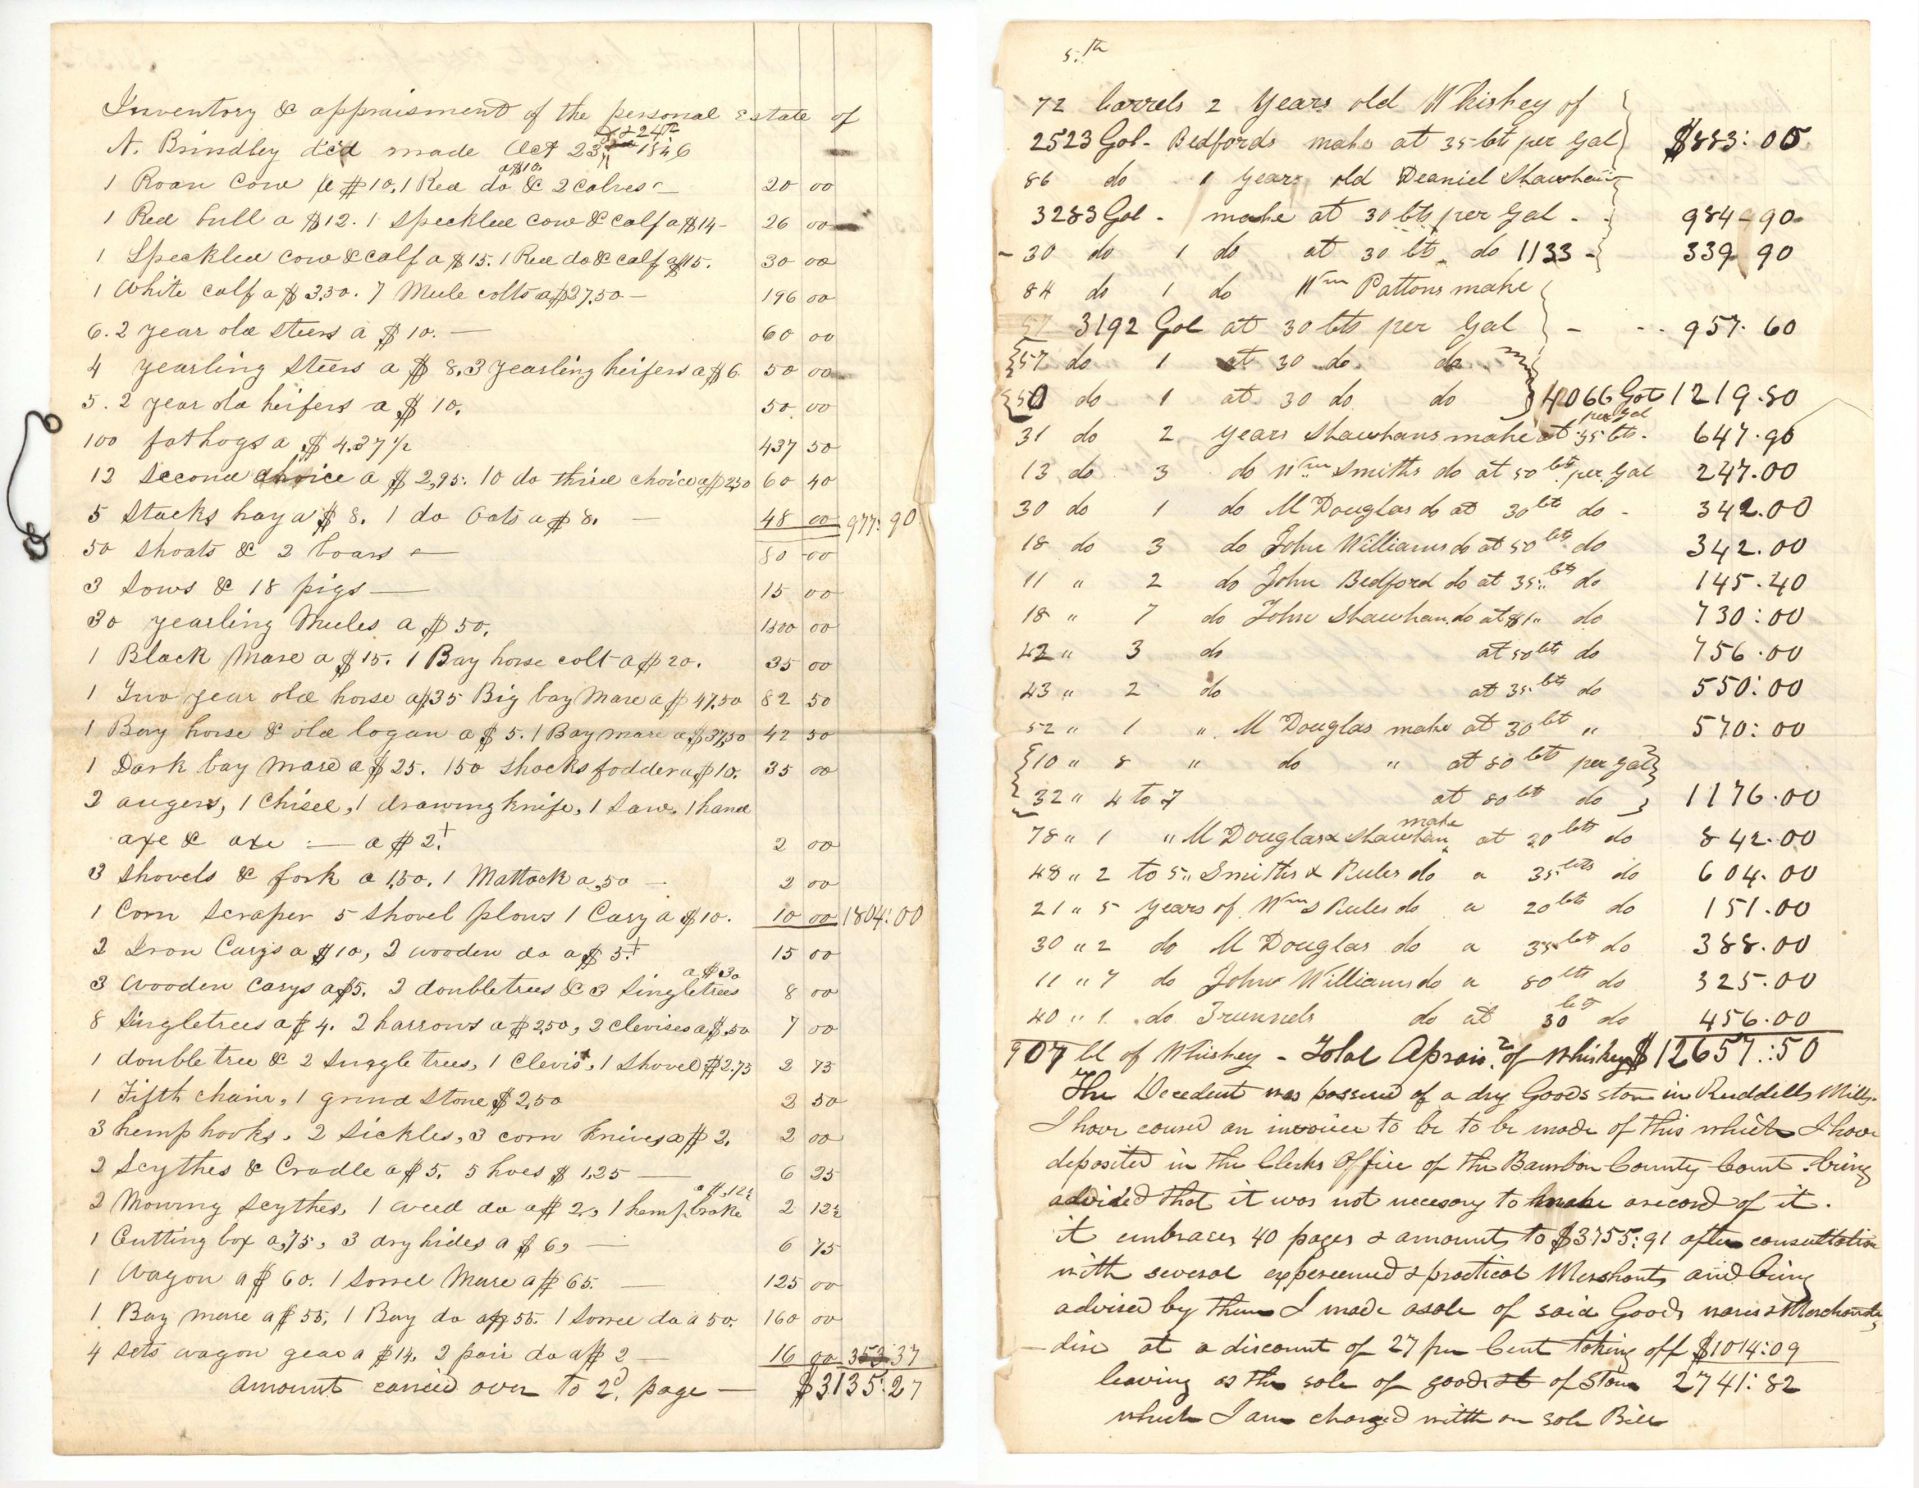 Inventory & appraisment of the personal Estate of
N. Brindley dec'd made Oct 23 & 24th 1846
1 Roan Cow a $10. 1 Red do a $10. & 2 calves — 20 00
1 Red bull a $12. 1 Speckled cow & calf a $14 — 26 00
1 Speckled cow & calf a $15. 1 Red do & calf a $15. 30 00
1 White calf a $3.50. 7 Mule colts a $27.50 — 196 00
6. 2 year old steers a $10. — 60 00
4 yearling steers a $8. 3 yearling heifers a $6 50 00
5. 2 year old heifers a $10. 50 00
100 fat hogs a $4.37½ 437 50
12 second choice a $2,95. 10 do third choice a $2,50 60 40
5 Stacks hay a $8. 1 do Oats a $8. — 48 00 977: 90
50 shoats & 2 boars — 80 00
3 Sows & 18 pigs — 15 00
30 yearling Mules a $50. 1500 00
1 Black Mare a $15. 1 Bay horse colt a $20. 35 00
1 Two year old horse a $35 Big bay Mare a $47,50 82 50
1 Bay horse & old logan a $5. 1 Bay mare a $37,50 42 50
1 Dark bay mare a $25. 150 shocks fodder a $10. 35 00
2 augers, 1 Chisel, 1 drawing knife, 1 Saw. 1 hand
axe & axe — a $2. 2 00
3 Shovels & fork a 1,50. 1 Mattock a ,50 — 2 00
1 Corn Scraper 5 Shovel plows 1 Cary a $10. 10 00 1804: 00
2 Iron Carys a $10, 2 wooden do a $5. 15 00
3 wooden Carys a $5. 2 doubletrees & 3 Singletrees a $3 8 00
8 Singletrees a $4. 2 harrows a $2,50, 2 clevises a $,50 7 00
1 doubletree & 2 Singletrees, 1 Clevis, 1 Shovel $2.75 2 75
1 Fifth chain, 1 grind Stone $2,50 2 50
3 hemp hooks, 2 Sickles, 3 corn knives a $2. 2 00
2 Scythes & Cradle a $5. 5 hoes $1,25 — 6 25
2 Mowing Scythes, 1 weed do a $2, 1 hemp brake a $,12½ 2 12½
1 Cutting box a ,75, 3 dry hides a $6, — 6 75
1 Wagon a $60. 1 Sorrel Mare a $65. — 125 00
1 Bay mare a $55. 1 Bay do a $55. 1 Sorrel do a 50. 160 00
4 Sets wagon gear a $14. 2 pair do a $2 — 16 00 353.37
Amount carried over to 2d page — $3135.27
5.th
72 barrels 2 Years old Whiskey of
2523 Gal- Bedfords make at 35 cts per Gal $883: 05
86 do 1 Years old Deaniel Shawhan
3283 Gal - make at 30 cts per Gal - 984-90
- 30 do 1 do at 30 cts. do 1133 - 339 90
84 do 1 do Wm Pattons make
3192 Gal at 30 cts per Gal - 957. 60
57 do 1 at 30 do do
50 do 1 at 30 do do 4066 Gal 1219.80
31 do 2 years Shawhans make at 35 cts. per Gal 647.90
13 do 3 do Wm Smiths do at 50 cts per Gal 247.00
30 do 1 do M Douglas do at 30 cts do - 342.00
18 do 3 do John Williams do at 50 cts do 342.00
11 " 2 do John Bedford do at 35 cts do 145.40
18 " 7 do John Shawhan do at 81 " do 730:00
42 " 3 do at 50 cts do 756.00
43 " 2 do at 35 cts do 550:00
52 " 1 " M Douglas make at 30 cts " 570: 00
10 " 8 " do " at 80 cts per Gal
32 " 4 to 7 at 80 cts do 1176.00
78 " 1 " M Douglas & Shawhan make at 30 cts do 842.00
48 " 2 to 5 " Smiths & Rules do a 35 cts do 604.00
21 " 5 years of Wm S Rules do a 20 cts do 151.00
30 " 2 do M Douglas do a 35 cts do 388.00
11 " 7 do John Williams do a 80 cts do 325.00
40 " 1 do Trunnels do at 30 cts do 456.00
907 bl of Whiskey - Total Aprais. of Whiskey $12657:50
The Decedent was possessed of a dry Goods store in Ruddells Mills.
I have caused an invoice to be to be made of this which I have
deposited in the Clerks Office of the Bourbon County Court. being
advised that it was not necesary to make a record of it.
it embraces 40 pages & amounts to $3755:91 after consultation
with several expereenced & practical Merchants and being
advised by them I made a sale of said Goods wares & Merchan
dise at a discount of 27 per Cent taking off $1014:09
leaving as the sale of goods of store 2741:82
which I am charged with on sale Bill